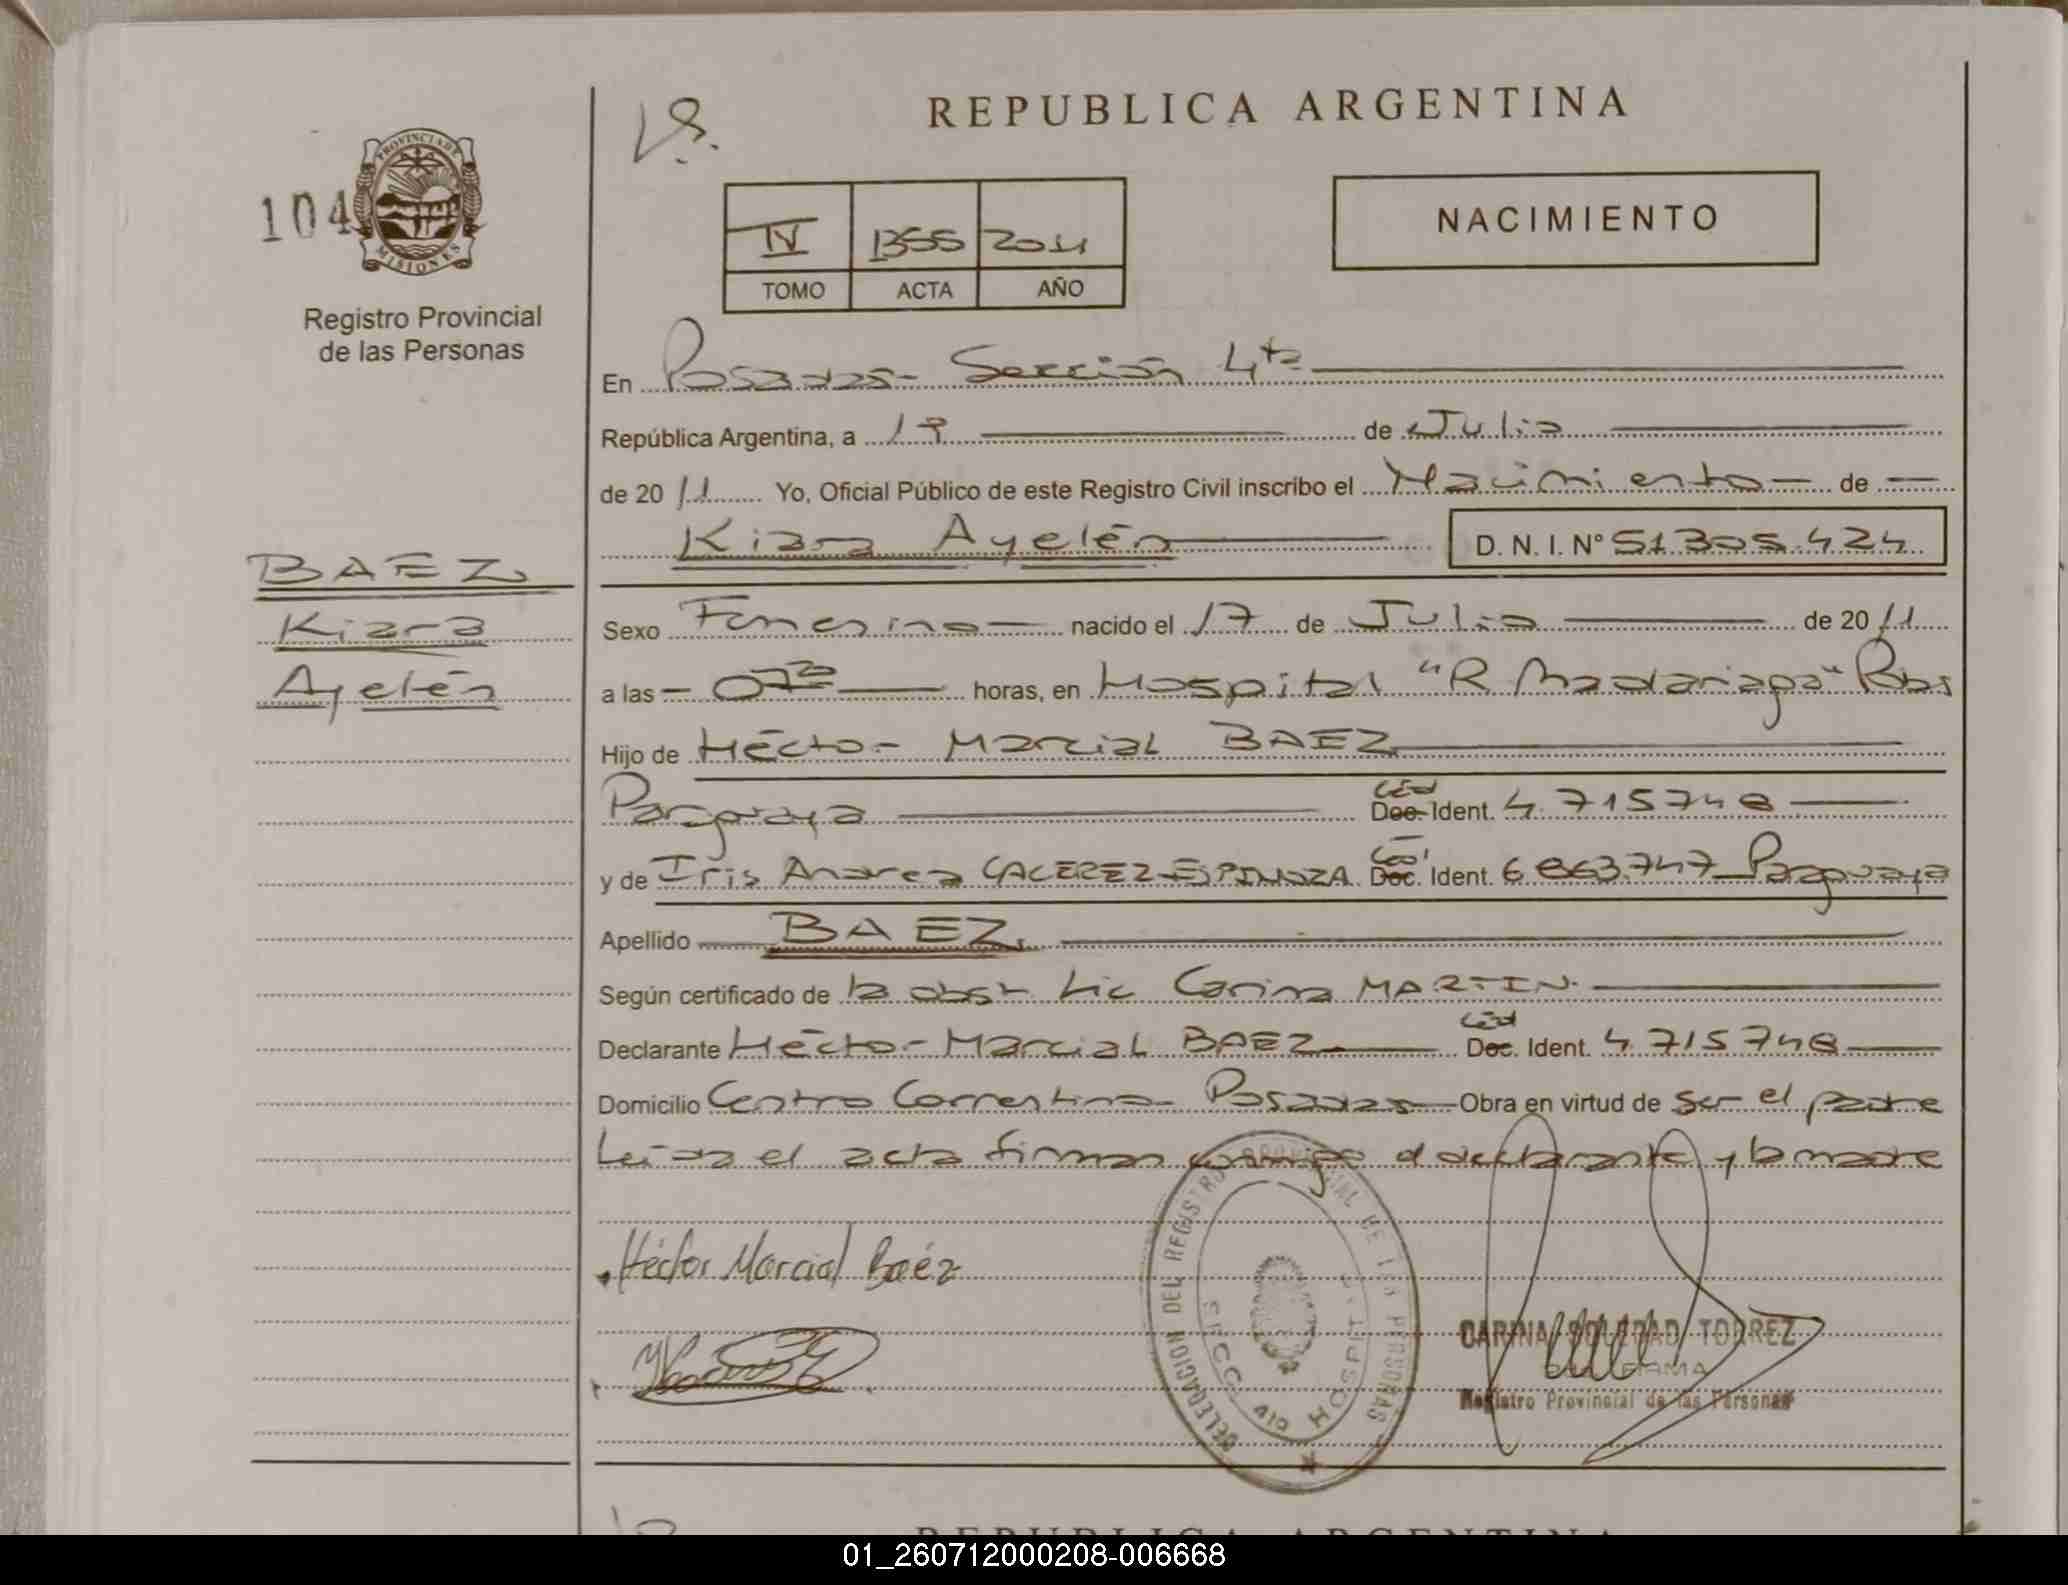 V.S.
REPUBLICA ARGENTINA
104
PROVINCIA DE MISIONES
IV 1355 2011
TOMO ACTA AÑO
NACIMIENTO
Registro Provincial
de las Personas
En Posadas - Sección 4ta
República Argentina, a 19 de Julio
de 2011 Yo, Oficial Público de este Registro Civil inscribo el Nacimiento de
Kiara Ayelén D. N. I. N° 51.305.424
BAEZ
Kiara
Ayelén
Sexo Femenino nacido el 17 de Julio de 2011
a las horas, en Hospital "R Madariaga" Pdas
Hijo de Héctor Marcial BAEZ
Paraguaya Céd Doc. Ident. 4.715748
y de Iris Andrea CACEREZ ESPINOZA Céd Doc. Ident. 6863747 Paraguaya
Apellido BAEZ
Según certificado de la obst Lic Carina MARTIN
Declarante Héctor Marcial BAEZ Céd Doc. Ident. 4.715748
Domicilio Centro Correntino - Posadas Obra en virtud de ser el padre
Leída el acta firman conmigo el declarante y la madre
Héctor Marcial Baéz
DELEGACION DEL REGISTRO PROVINCIAL DE LAS PERSONAS
SECC. 4ta HOSPITAL
CARINA SOLEDAD TORREZ
FIRMA
Registro Provincial de las Personas
REPUBLICA ARGENTINA
01_260712000208-006668